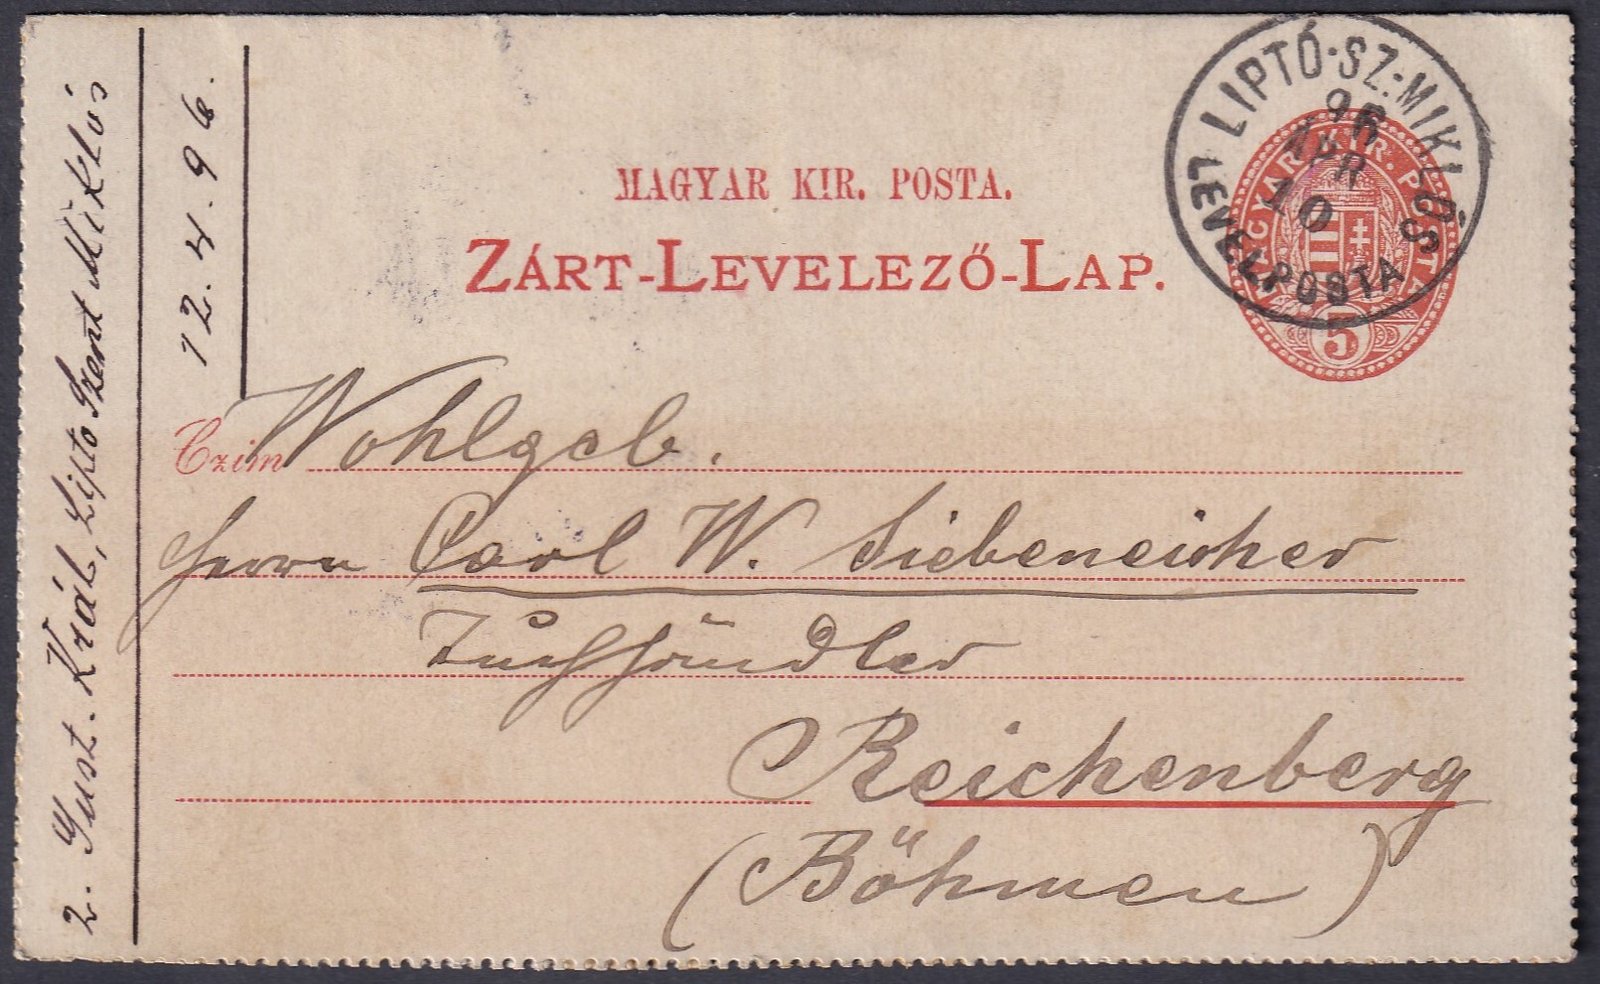 MAGYAR KIR. POSTA.
ZÁRT-LEVELEZŐ-LAP.
LIPTÓ-SZ:MIKLÓS
96
APR
10
LEVÉLPOSTA
MAGYAR KIR. POSTA
5
Czim Wohlgeb.
Herrn Carl W. Siebeneicher
Tuchhändler
Reichenberg
(Böhmen)
2. Gust. Král, Lipto Szent Miklós
12.4.96.